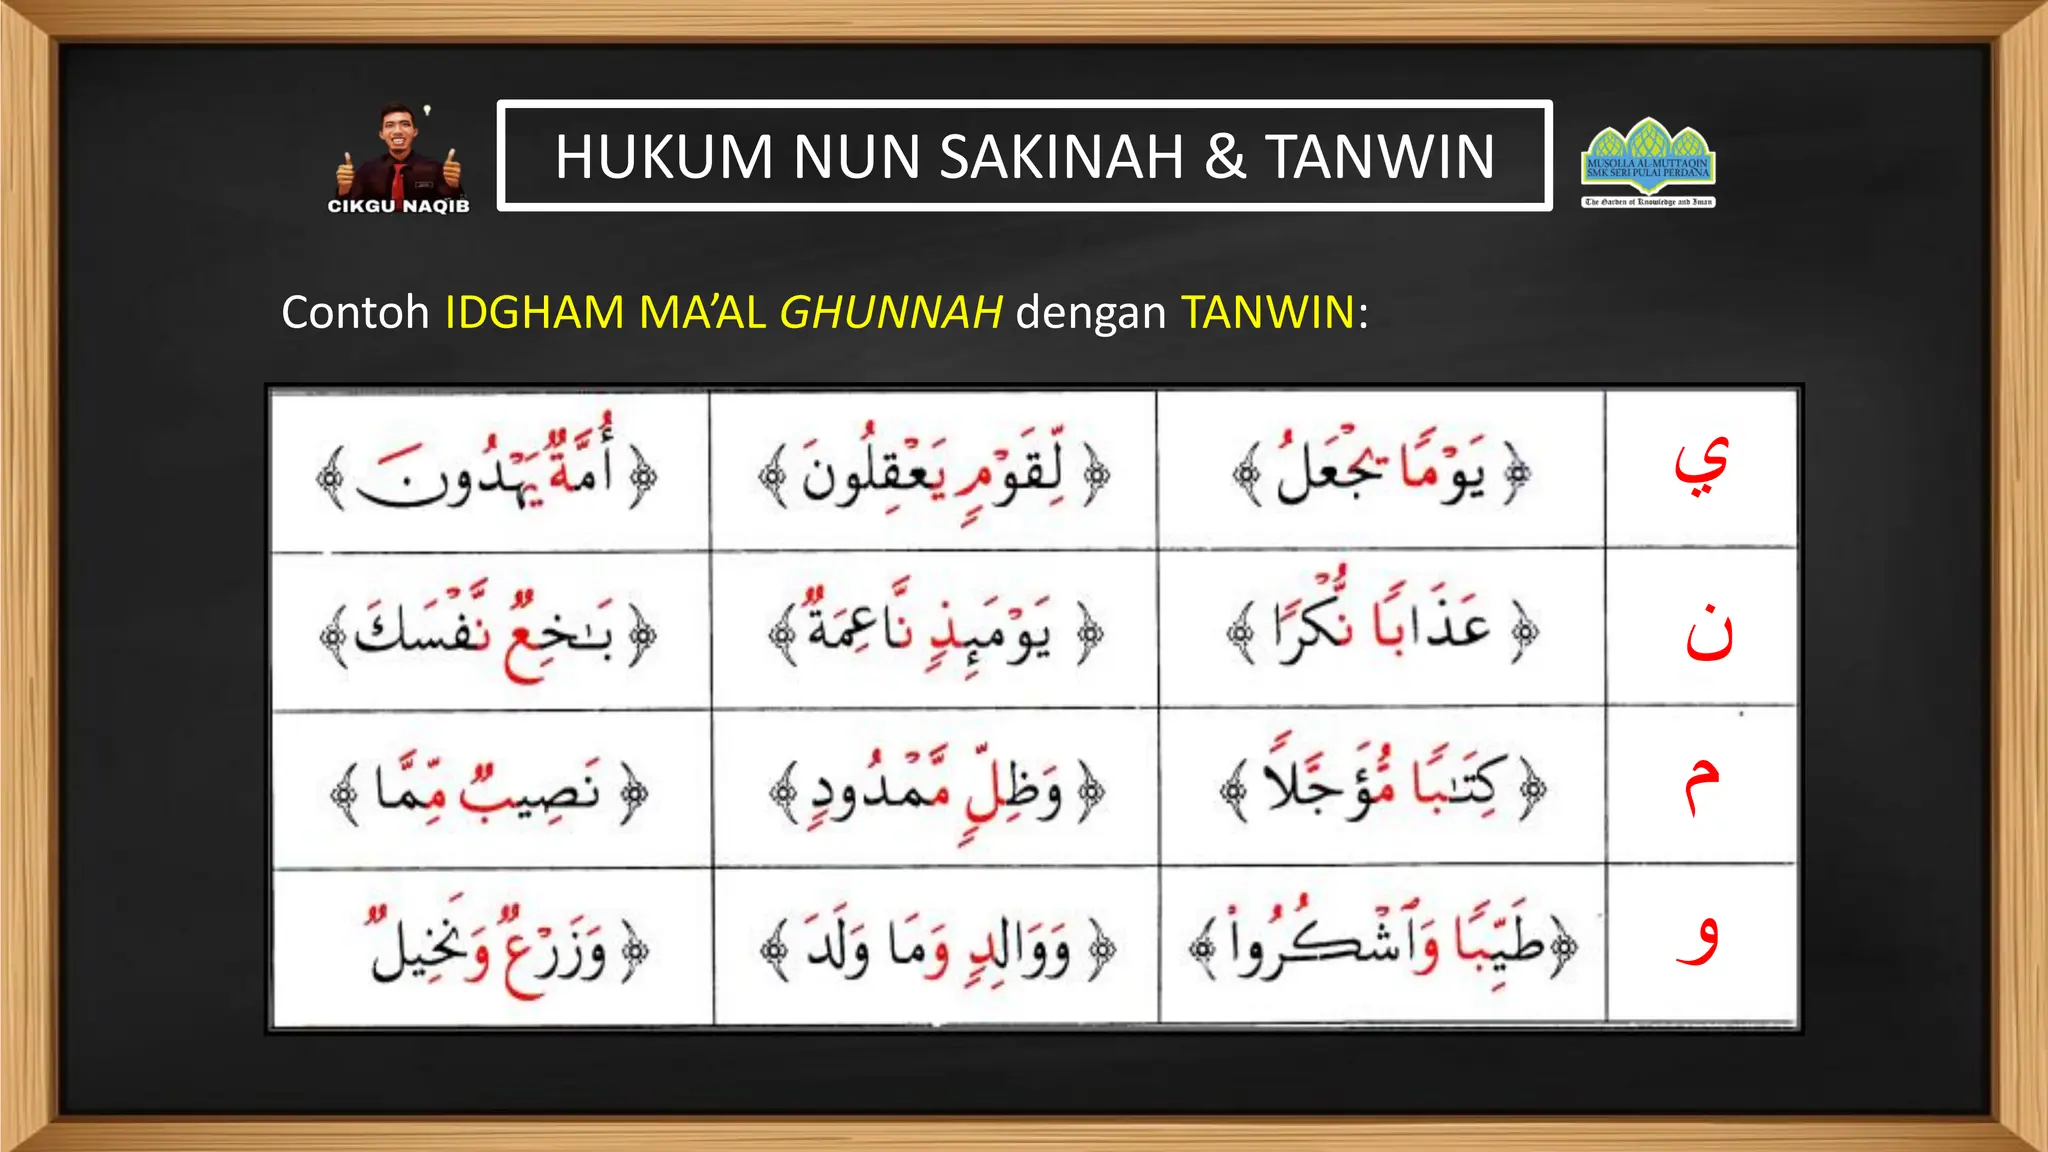 CIKGU NAQIB
HUKUM NUN SAKINAH & TANWIN
MUSOLLA AL-MUTTAQIN
SMK SERI PULAI PERDANA
The Garden of Knowledge and Iman
Contoh IDGHAM MA’AL GHUNNAH dengan TANWIN:
ي ﴿ يَوْمًا يَجْعَلُ ﴾ ﴿ لِّقَوْمٍ يَعْقِلُونَ ﴾ ﴿ أُمَّةٌ يَهْدُونَ ﴾
ن ﴿ عَذَابًا نُّكْرًا ﴾ ﴿ يَوْمَئِذٍ نَّاعِمَةٌ ﴾ ﴿ بَـٰخِعٌ نَّفْسَكَ ﴾
م ﴿ كِتَـٰبًا مُّؤَجَّلاً ﴾ ﴿ وَظِلٍّ مَّمْدُودٍ ﴾ ﴿ نَصِيبٌ مِّمَّا ﴾
و ﴿ طَيِّبًا وَٱشْكُرُواْ ﴾ ﴿ وَوَالِدٍ وَمَا وَلَدَ ﴾ ﴿ وَزَرْعٌ وَنَخِيلٌ